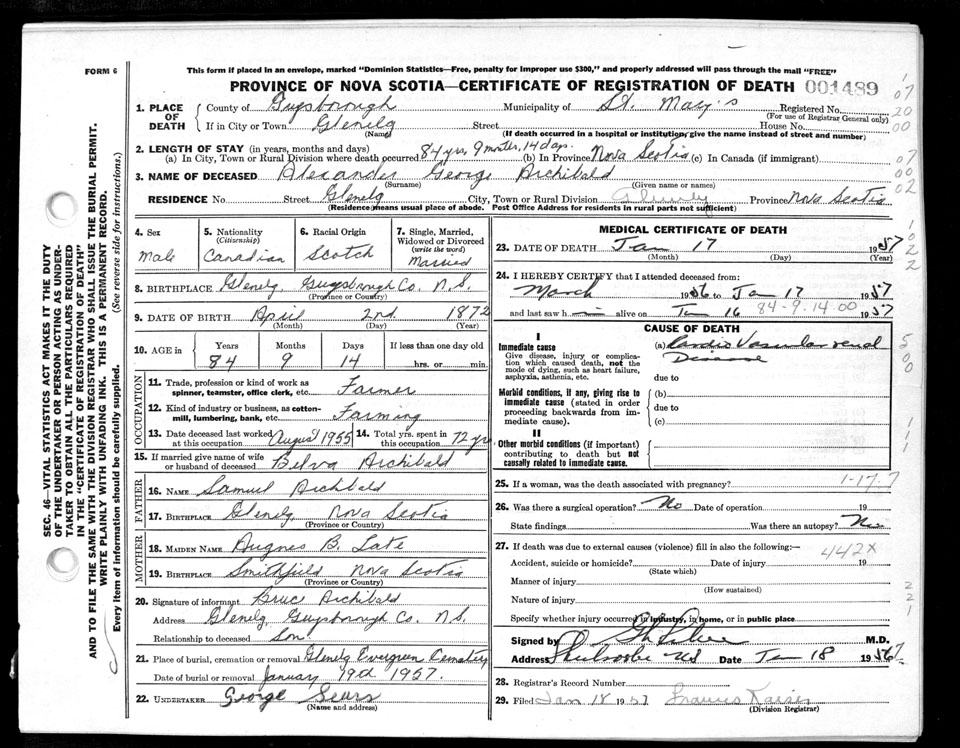 FORM 6
This form if placed in an envelope, marked "Dominion Statistics—Free, penalty for improper use $300," and properly addressed will pass through the mail "FREE"
PROVINCE OF NOVA SCOTIA—CERTIFICATE OF REGISTRATION OF DEATH 001489
1. PLACE OF DEATH
County of Guysborough Municipality of St. Mary's Registered No.
(For use of Registrar General only)
If in City or Town Glenelg Street House No.
(Name) (If death occurred in a hospital or institution, give the name instead of street and number)
2. LENGTH OF STAY (in years, months and days)
(a) In City, Town or Rural Division where death occurred 84 yrs, 9 months, 14 days. (b) In Province Nova Scotia (c) In Canada (if immigrant)
3. NAME OF DECEASED Alexander George Archibald
(Surname) (Given name or names)
RESIDENCE No. Street Glenelg City, Town or Rural Division Glenelg Province Nova Scotia
(Residence means usual place of abode. Post Office Address for residents in rural parts not sufficient)
4. Sex
Male
5. Nationality
(Citizenship)
Canadian
6. Racial Origin
Scotch
7. Single, Married, Widowed or Divorced
(write the word)
Married
8. BIRTHPLACE Glenelg, Guysborough Co. N.S.
(Province or Country)
9. DATE OF BIRTH April 2nd 1872
(Month) (Day) (Year)
10. AGE in Years Months Days If less than one day old
84 9 14 hrs. or min.
OCCUPATION
11. Trade, profession or kind of work as spinner, teamster, office clerk, etc. Farmer
12. Kind of industry or business, as cotton-mill, lumbering, bank, etc. Farming
13. Date deceased last worked at this occupation August 1955 14. Total yrs. spent in this occupation 72 yrs
15. If married give name of wife or husband of deceased Belva Archibald
FATHER
16. NAME Samuel Archibald
17. BIRTHPLACE Glenelg, Nova Scotia
(Province or Country)
MOTHER
18. MAIDEN NAME Augnes B. Tate
19. BIRTHPLACE Smithfield Nova Scotia
(Province or Country)
20. Signature of informant Bruce Archibald
Address Glenelg, Guysborough Co. N.S.
Relationship to deceased Son
21. Place of burial, cremation or removal Glenelg Evergreen Cemetery
Date of burial or removal January 19d 1957.
22. UNDERTAKER George Sears
(Name and address)
MEDICAL CERTIFICATE OF DEATH
23. DATE OF DEATH Jan 17 1957
(Month) (Day) (Year)
24. I HEREBY CERTIFY that I attended deceased from:
March 1956 to Jan 17 1957
and last saw h im alive on Jan 16 1957
84-9-14-00
CAUSE OF DEATH
I
Immediate cause
Give disease, injury or complication which caused death, not the mode of dying, such as heart failure, asphyxia, asthenia, etc.
(a) Cardio Vascular renal
Disease
due to
Morbid conditions, if any, giving rise to immediate cause (stated in order proceeding backwards from immediate cause).
(b)
due to
(c)
II
Other morbid conditions (if important) contributing to death but not causally related to immediate cause.
25. If a woman, was the death associated with pregnancy?
1-17-7
26. Was there a surgical operation? No Date of operation 19
State findings Was there an autopsy? No
27. If death was due to external causes (violence) fill in also the following:—
442X
Accident, suicide or homicide? Date of injury 19
(State which)
Manner of injury
(How sustained)
Nature of injury
Specify whether injury occurred in industry, in home, or in public place
Signed by M.D.
Address Sherbrooke NS Date Jan 18 1957
28. Registrar's Record Number
29. Filed Jan 18 1957 Frances Kaiser
(Division Registrar)
SEC. 46—VITAL STATISTICS ACT MAKES IT THE DUTY
OF THE UNDERTAKER OR PERSON ACTING AS UNDERTAKER
TO OBTAIN ALL THE PARTICULARS REQUIRED
IN THE "CERTIFICATE OF REGISTRATION OF DEATH"
AND TO FILE THE SAME WITH THE DIVISION REGISTRAR WHO SHALL ISSUE THE BURIAL PERMIT.
WRITE PLAINLY WITH UNFADING INK. THIS IS A PERMANENT RECORD.
Every item of information should be carefully supplied. (See reverse side for instructions.)